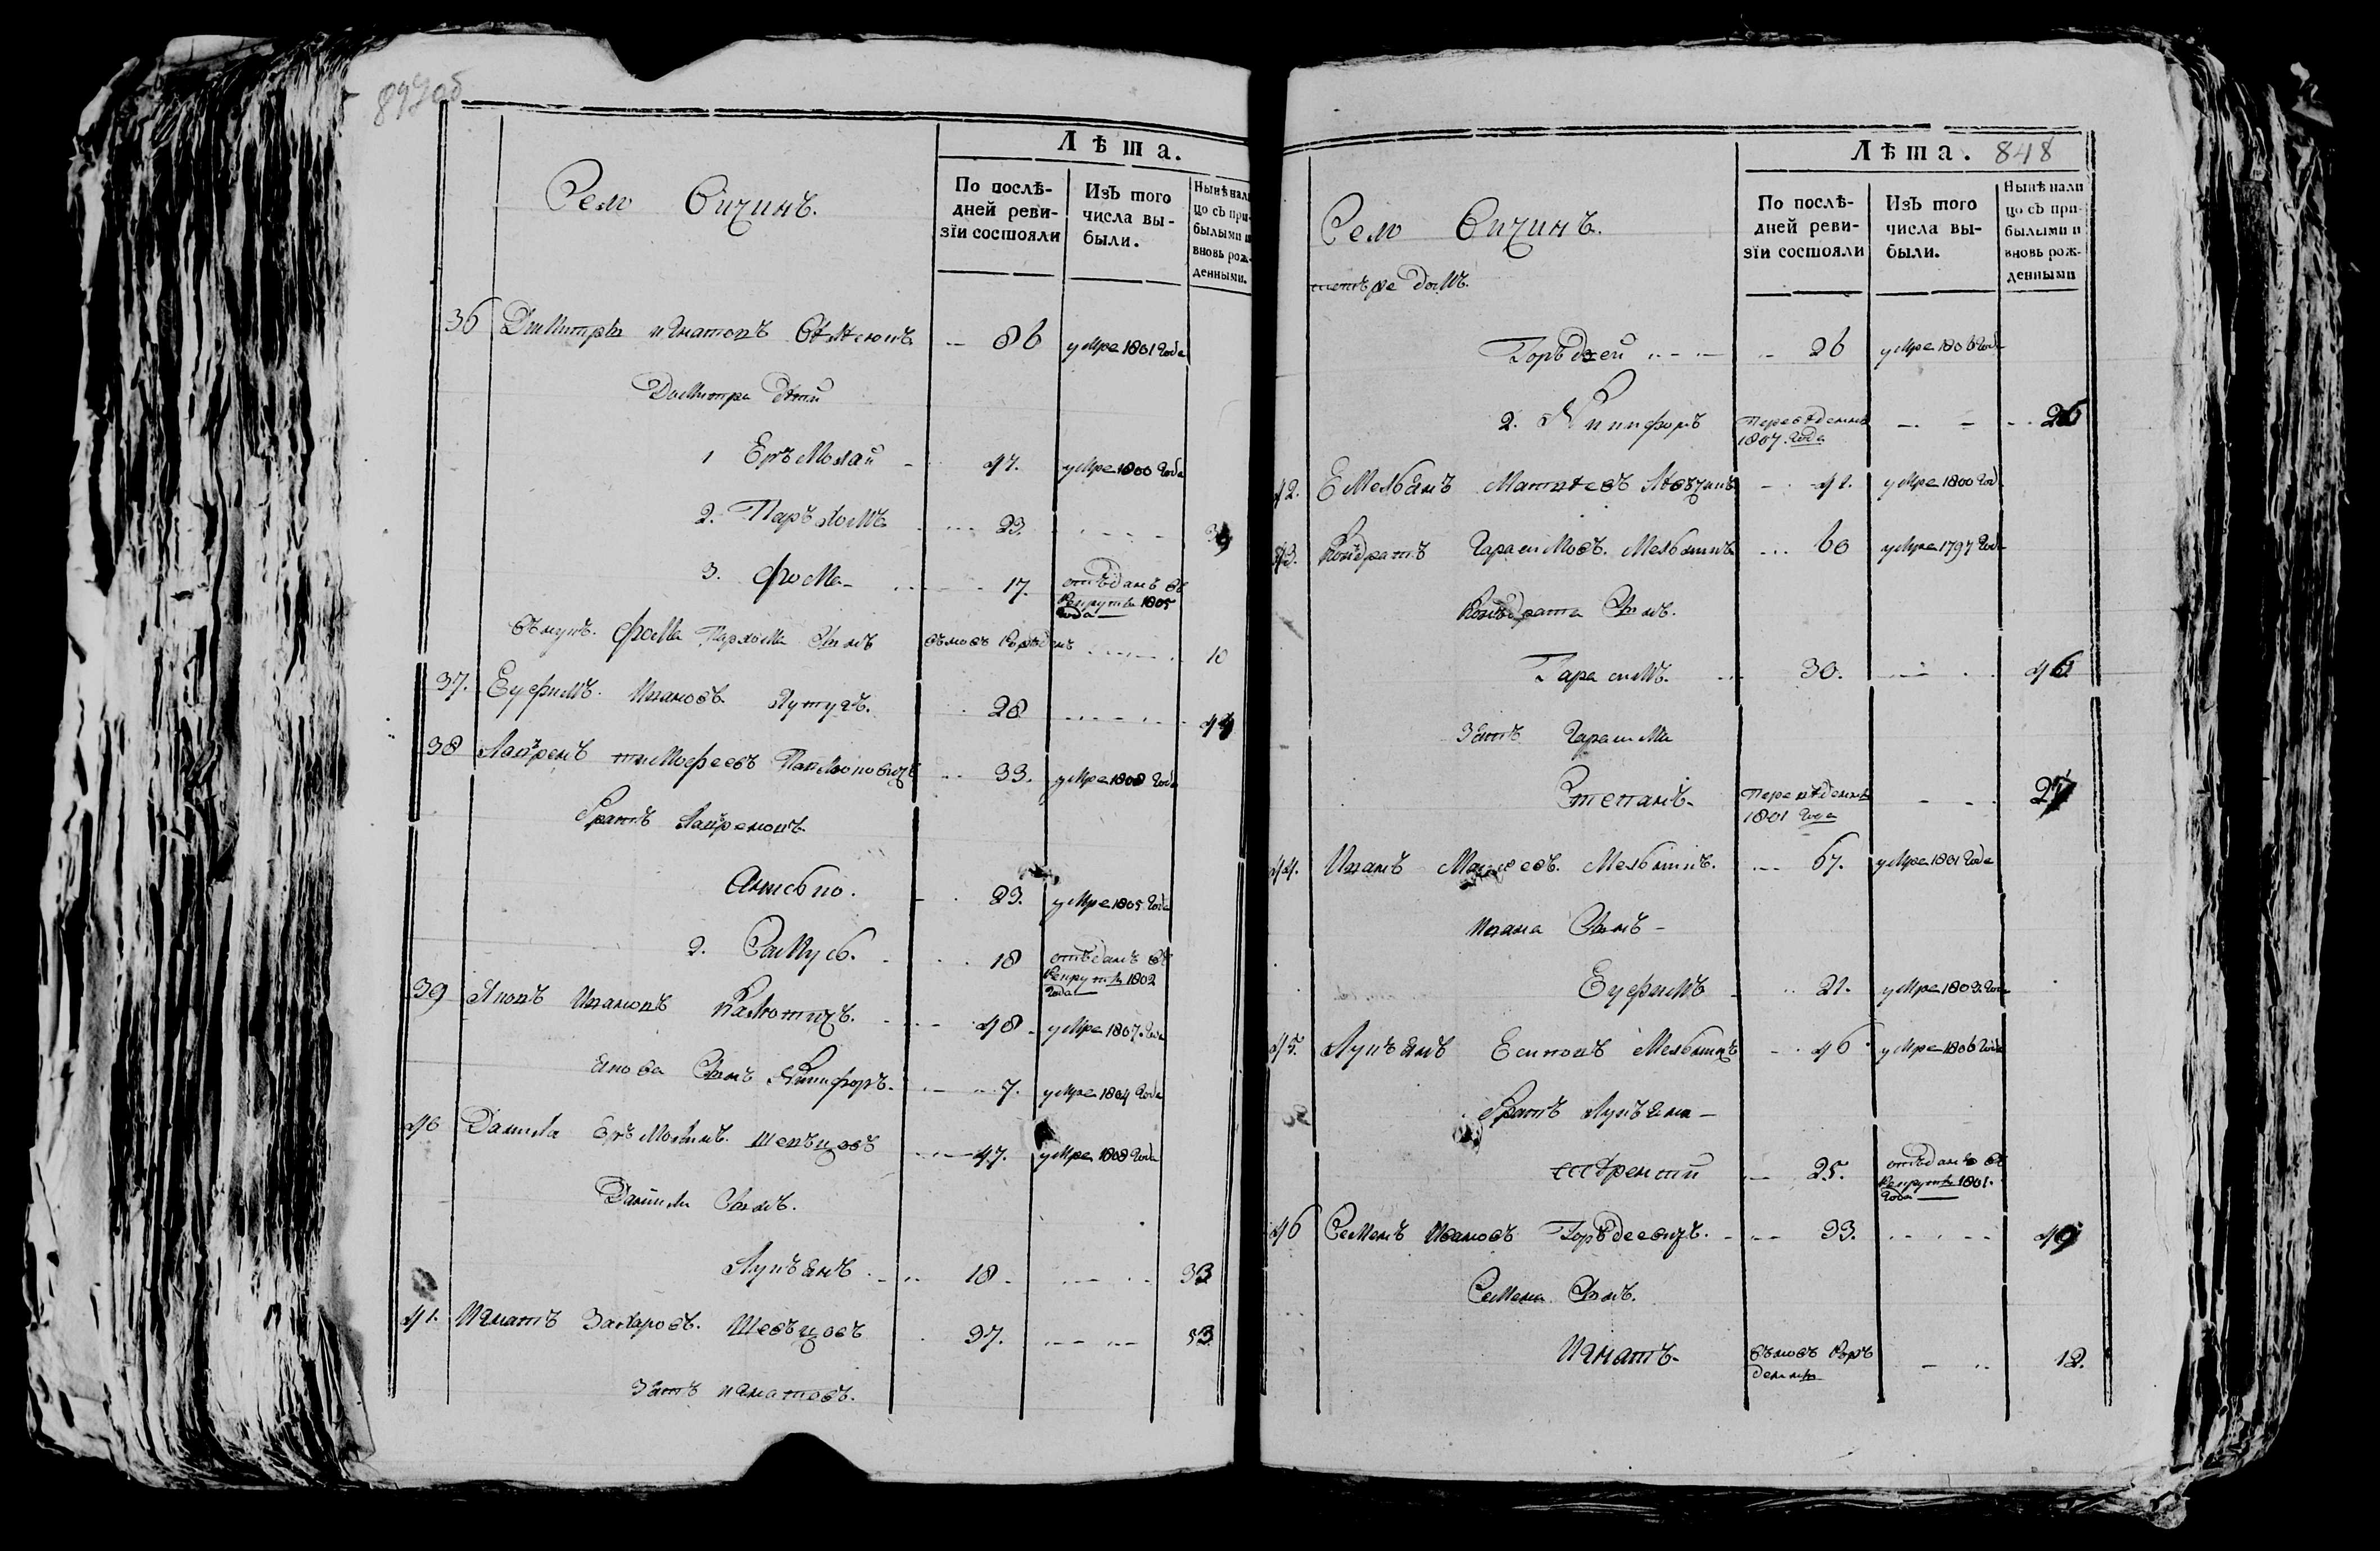 847об
Лѣта.
Село Сичинъ.
По послѣ-
дней реви-
зїи состояли
Изъ того
числа вы-
были.
Нынѣ нали
цо съ при-
былыми и
вновь рож-
денными.
36 Дмитръ игнатовъ 86 умре 1801 Года
Дмитра дѣти
1 Еръмолай 47. умре 1800 Года
2. Паръхомъ 23. 39
3. Фома 17. отъданъ въ
Рекруты 1805
Года
внукъ. Фома Пархома Сынъ вьновь рожденъ 10
37. Еуфимъ. Ивановъ. 28 44
38 Лаврѣнъ тимофеевъ 33. умре 1808 Года
братъ Лавреновъ
2. 23. умре 1805 Года
2. 18 отъданъ въ
Рекруты 1802
Года
39 Яковъ Ивановъ 48. умре 1807. Года
Якова Сынъ Никифоръ. 7. умре 1804 Года
40 Данила Еръмолинъ. шевъцовъ 47. умре 1808 Года
Данила Сынъ.
Лукъянъ 18. 33
41. Игнатъ Захаровъ. Шевъцовъ 37. 53
Зять игнатовъ.
Лѣта. 848
Село Сичинъ.
По послѣ-
дней реви-
зїи состояли
Изъ того
числа вы-
были.
Нынѣ нали
цо съ при-
былыми и
вновь рож-
денными
домъ.
Горъдей 26 умре 1806 Года
2. Никифоръ переведенъ
1807. Года 26
42. Емельянъ Матвѣевъ 42. умре 1800 Год
43. Кондратъ Гарасимовъ. Мельникъ 60 умре 1797 Года
Конъдрата Сынъ.
Гарасимъ. 30. 46
Зять Гарасима
Степанъ. переведенъ
1801 Года 27
44. Иванъ Мельникъ. 67. умре 1801 Года
Ивана Сынъ
Еуфимъ 21. умре 1803. Года
45. Лукъянъ Есиповъ Мельникъ 46 умре 1806 Года
братъ Лукъяна
25. отъданъ въ
Рекруты 1801.
Года
46 Семенъ Ивановъ Горъдеевичъ. 33. 49
Семена Сынъ.
Игнатъ. вьновь Роръ
денны 12.